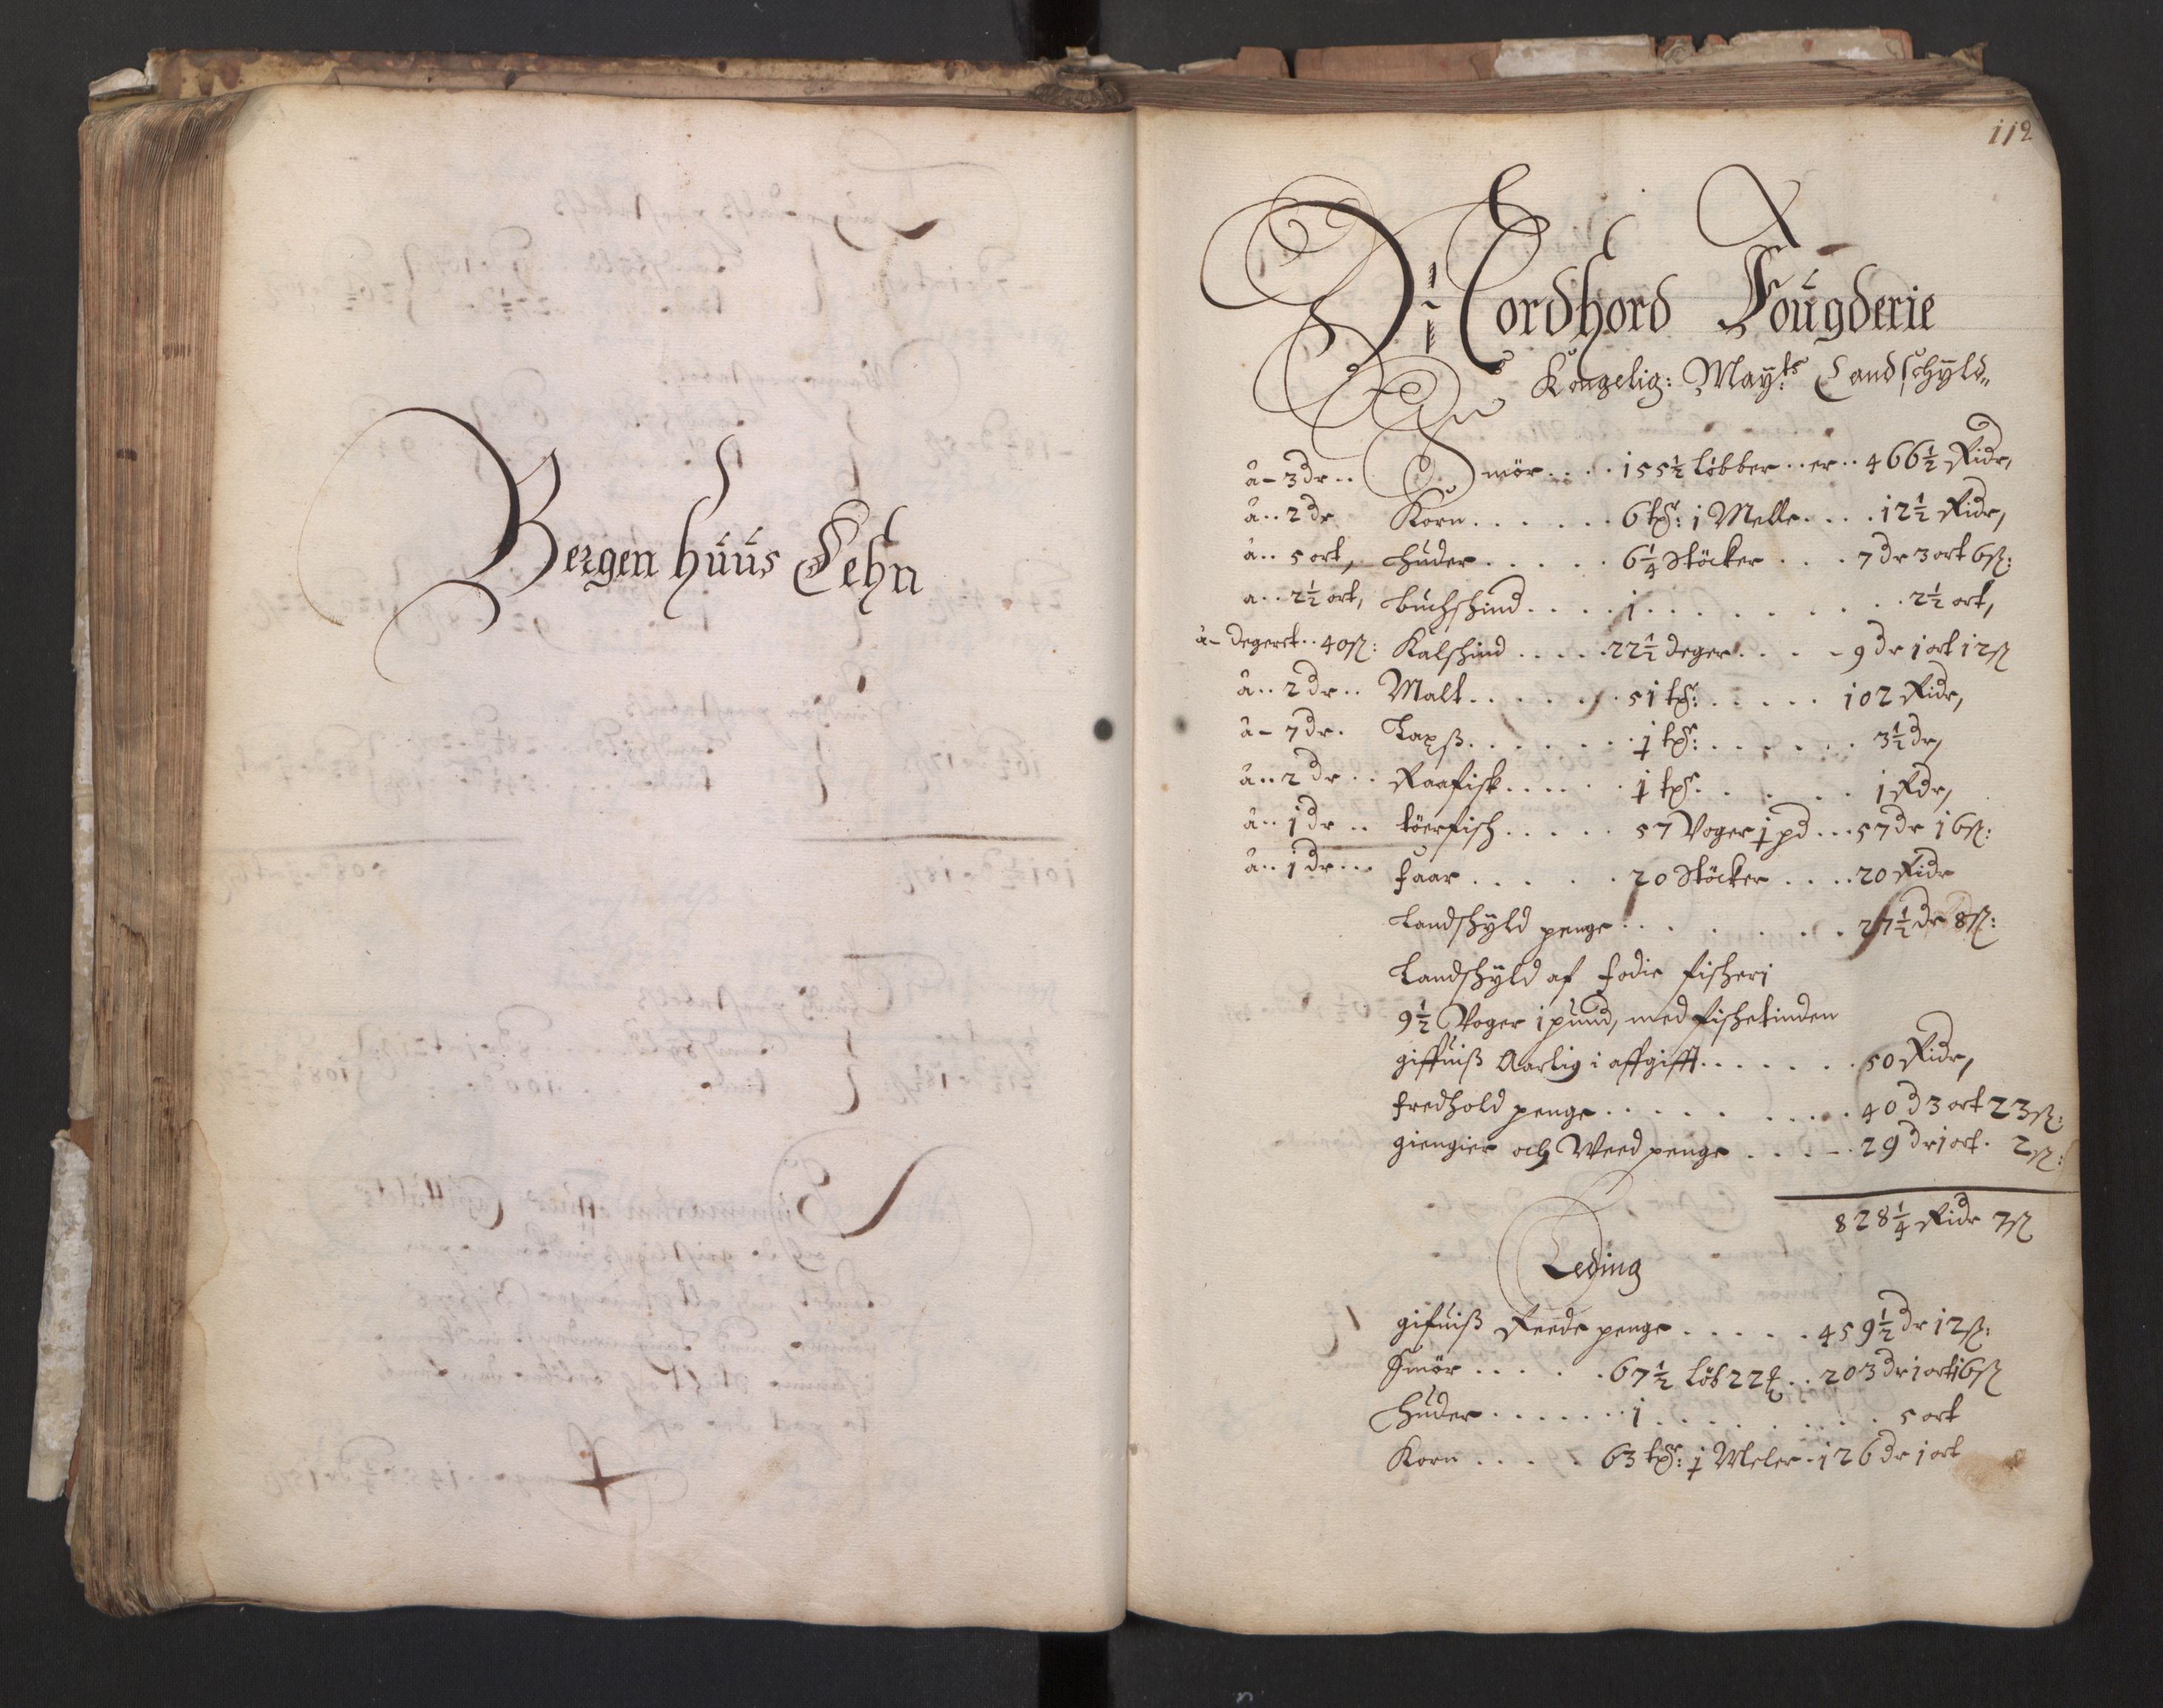 Bergen huus Lehn
112
Nordhord Fougderie
Kongelig: May:ts Landschyld
à - 3 dr .. Smør .... 155½ løbber .. er .. 466½ Ridr,
à .. 2 dr Korn ...... 6 tr: 1 Melle .... 12½ Ridr,
à .. 5 ort, Huder ..... 6¼ Støcker ... 7 dr 3 ort 6 ß:
a .. 2½ ort, buchshind .... 1 ........ 2½ ort,
à - degeret .. 40 ß: Kalfshind ..... 22½ deger .... 9 dr 1 ort 12 ß
à .. 2 dr .. Malt ....... 51 tr: ..... 102 Ridr,
à - 7 dr . Laxß ....... ½ tr: ...... 3½ dr,
à .. 2 dr .. Raafisk ..... ½ tr ...... 1 Rdr,
à .. 1 dr .. tøerfisch ..... 57 Voger ½ pd ... 57 dr 16 ß:
à .. 1 dr ... faar ..... 20 Støcker .... 20 Ridr
Landshyld penge ........ 27½ dr 8 ß:
Landshyld af fodie fisheri
9½ Voger 1 pund, med fishetinden
giffuiß Aarlig i affgifft ...... 50 Ridr,
fredhold penge ......... 40 d 3 ort 23 ß:
giengier och Weed penge ..... 29 dr 1 ort . 2 ß:
828¼ Ridr 7 ß
Leding
gifuiß Reede penge ..... 459½ dr 12 ß:
Smør ..... 67½ løb 22 ℔ .. 203 dr 1 ort 16 ß
Huder ....... 1 ........ 5 ort
Korn ..... 63 tr: ½ Meler . 126 dr 1 ort